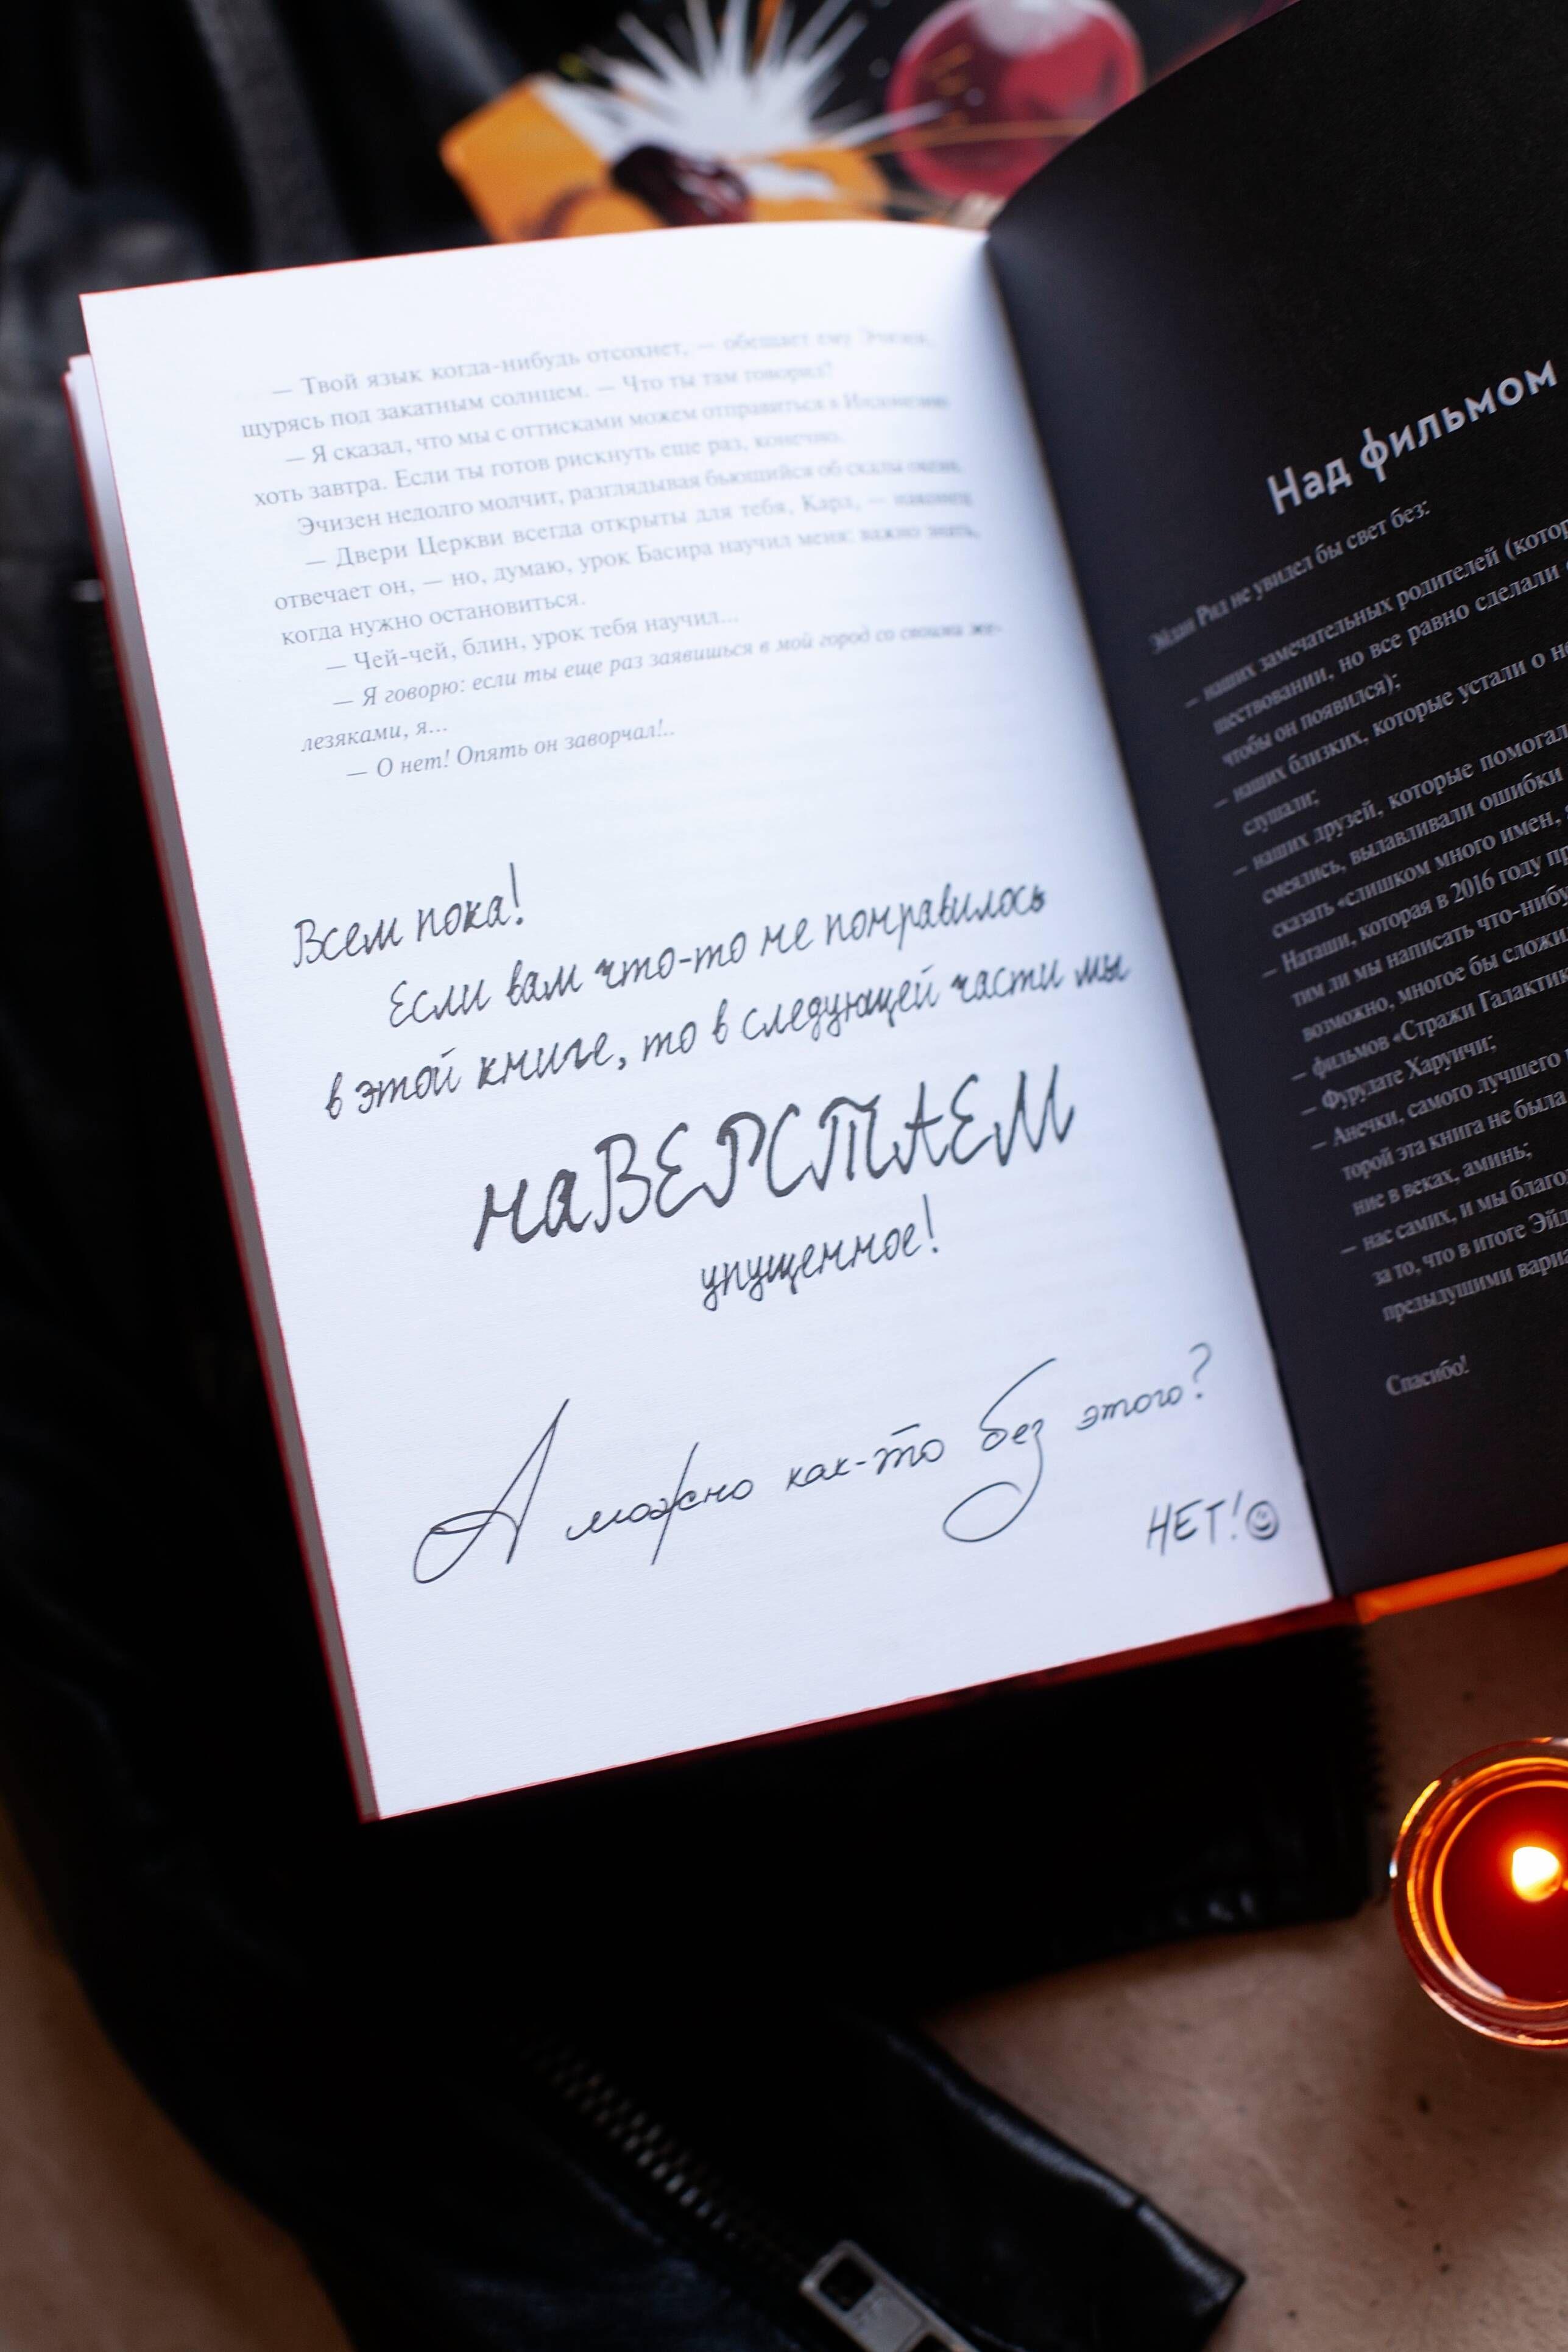 — Твой язык когда-нибудь отсохнет, — обещает ему Эчизен,
щурясь под закатным солнцем. — Что ты там говорил?
— Я сказал, что мы с оттисками можем отправиться в Индонезию
хоть завтра. Если ты готов рискнуть еще раз, конечно.
Эчизен недолго молчит, разглядывая бьющийся об скалы океан.
— Двери Церкви всегда открыты для тебя, Карл, — наконец
отвечает он, — но, думаю, урок Басира научил меня: важно знать,
когда нужно остановиться.
— Чей-чей, блин, урок тебя научил...
— Я говорю: если ты еще раз заявишься в мой город со своими же-
лезяками, я...
— О нет! Опять он заворчал!..
Всем пока!
Если вам что-то не понравилось
в этой книге, то в следующей части мы
наВЕРСТАЕМ
упущенное!
А можно как-то без этого?
НЕТ!
Над фильмом
Эйдан Рид не увидел бы свет без:
— наших замечательных родителей (котор
ществовании, но все равно сделали
чтобы он появился);
— наших близких, которые устали о не
слушали;
— наших друзей, которые помогал
смеялись, вылавливали ошибки
сказать «слишком много имен,
— Наташи, которая в 2016 году пр
тим ли мы написать что-нибу
возможно, многое бы сложи
— фильмов «Стражи Галактик
— Фурудате Харуичи;
— Анечки, самого лучшего
торой эта книга не была
ние в веках, аминь;
— нас самих, и мы благо
за то, что в итоге Эйд
предыдущими вариа
Спасибо!